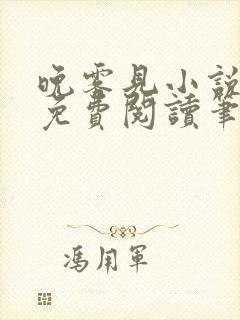 晚零見小說
免費閱讀筆
馮用軍